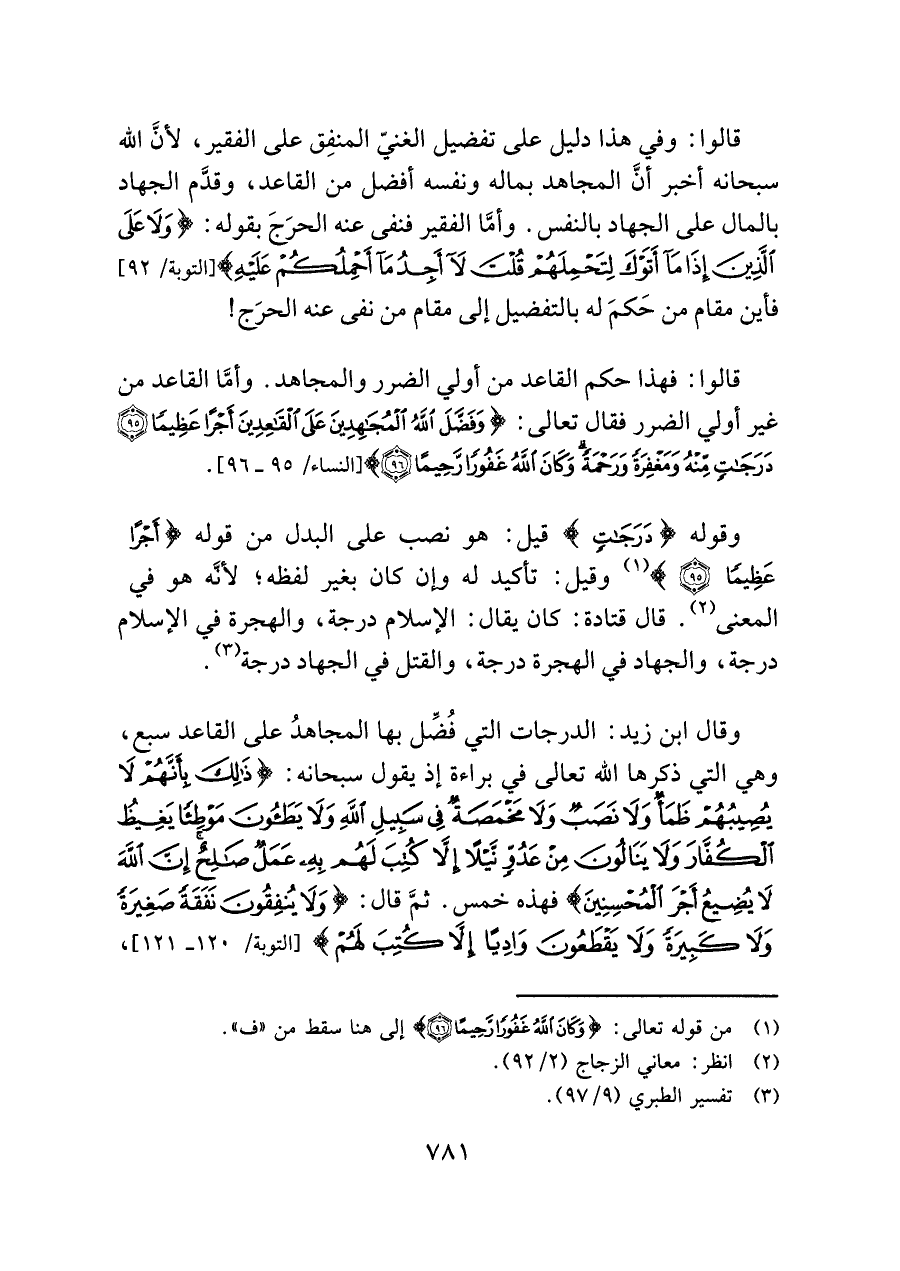 قالوا: وفي هذا دليل على تفضيل الغنيّ المنفِق على الفقير، لأنَّ الله
سبحانه أخبر أنَّ المجاهد بماله ونفسه أفضل من القاعد، وقدَّم الجهاد
بالمال على الجهاد بالنفس. وأمَّا الفقير فنفى عنه الحرَجَ بقوله: ﴿وَلَا عَلَى
ٱلَّذِينَ إِذَا مَآ أَتَوْكَ لِتَحْمِلَهُمْ قُلْتَ لَآ أَجِدُ مَآ أَحْمِلُكُمْ عَلَيْهِ﴾ [التوبة/ ٩٢]
فأين مقام من حَكمَ له بالتفضيل إلى مقام من نفى عنه الحرَج!
قالوا: فهذا حكم القاعد من أولي الضرر والمجاهد. وأمَّا القاعد من
غير أولي الضرر فقال تعالى: ﴿وَفَضَّلَ ٱللَّهُ ٱلْمُجَٰهِدِينَ عَلَى ٱلْقَٰعِدِينَ أَجْرًا عَظِيمًا ٩٥
دَرَجَٰتٍ مِّنْهُ وَمَغْفِرَةً وَرَحْمَةً ۚ وَكَانَ ٱللَّهُ غَفُورًا رَّحِيمًا ٩٦﴾ [النساء/ ٩٥ ـ ٩٦].
وقوله ﴿دَرَجَٰتٍ﴾ قيل: هو نصب على البدل من قوله ﴿أَجْرًا
عَظِيمًا ٩٥﴾(١) وقيل: تأكيد له وإن كان بغير لفظه؛ لأنَّه هو في
المعنى(٢). قال قتادة: كان يقال: الإسلام درجة، والهجرة في الإسلام
درجة، والجهاد في الهجرة درجة، والقتل في الجهاد درجة(٣).
وقال ابن زيد: الدرجات التي فُضِّل بها المجاهدُ على القاعد سبع،
وهي التي ذكرها الله تعالى في براءة إذ يقول سبحانه: ﴿ذَٰلِكَ بِأَنَّهُمْ لَا
يُصِيبُهُمْ ظَمَأٌ وَلَا نَصَبٌ وَلَا مَخْمَصَةٌ فِي سَبِيلِ ٱللَّهِ وَلَا يَطَـُٔونَ مَوْطِئًا يَغِيظُ
ٱلْكُفَّارَ وَلَا يَنَالُونَ مِنْ عَدُوٍّ نَّيْلًا إِلَّا كُتِبَ لَهُم بِهِۦ عَمَلٌ صَٰلِحٌ ۚ إِنَّ ٱللَّهَ
لَا يُضِيعُ أَجْرَ ٱلْمُحْسِنِينَ﴾ فهذه خمس. ثمَّ قال: ﴿وَلَا يُنفِقُونَ نَفَقَةً صَغِيرَةً
وَلَا كَبِيرَةً وَلَا يَقْطَعُونَ وَادِيًا إِلَّا كُتِبَ لَهُمْ﴾ [التوبة/ ١٢٠ـ ١٢١]،
(١) من قوله تعالى: ﴿وَكَانَ ٱللَّهُ غَفُورًا رَّحِيمًا ٩٦﴾ إلى هنا سقط من «ف».
(٢) انظر: معاني الزجاج (٢/ ٩٢).
(٣) تفسير الطبري (٩/ ٩٧).
٧٨١